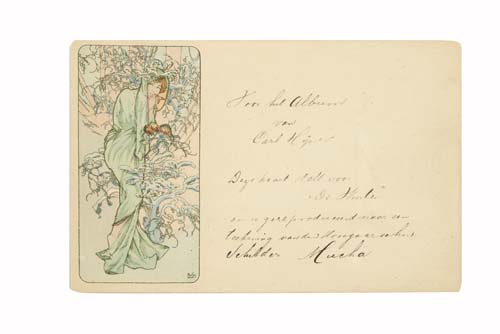 Voor het Album
van
Carl
Deze kaart stelt voor
"De Winter"
en is gereproduceerd naar een
teekening van den Hongaarschen
Schilder Mucha